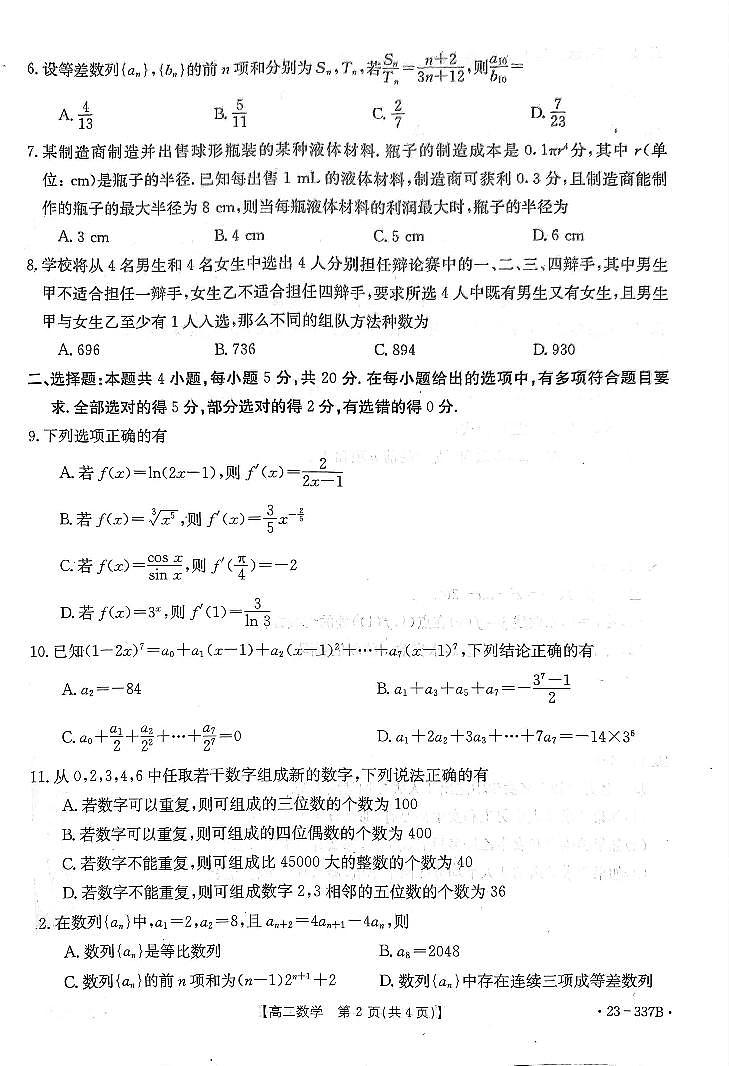 6.设等差数列{aₙ},{bₙ}的前n项和分别为Sₙ,Tₙ,若Sₙ/Tₙ=(n+2)/(3n+12),则a₁₀/b₁₀=
A. 4/13 B. 5/11 C. 2/7 D. 7/23
7.某制造商制造并出售球形瓶装的某种液体材料.瓶子的制造成本是0.1πr⁴分,其中r(单
位:cm)是瓶子的半径.已知每出售1 mL的液体材料,制造商可获利0.3分,且制造商能制
作的瓶子的最大半径为8 cm,则当每瓶液体材料的利润最大时,瓶子的半径为
A. 3 cm B. 4 cm C. 5 cm D. 6 cm
8.学校将从4名男生和4名女生中选出4人分别担任辩论赛中的一、二、三、四辩手,其中男生
甲不适合担任一辩手,女生乙不适合担任四辩手,要求所选4人中既有男生又有女生,且男生
甲与女生乙至少有1人入选,那么不同的组队方法种数为
A. 696 B. 736 C. 894 D. 930
二、选择题:本题共4小题,每小题5分,共20分.在每小题给出的选项中,有多项符合题目要
求.全部选对的得5分,部分选对的得2分,有选错的得0分.
9.下列选项正确的有
A.若f(x)=ln(2x−1),则f′(x)=2/(2x−1)
B.若f(x)=∛x⁵,则f′(x)=3/5 x^(−2/5)
C.若f(x)=cos x/sin x,则f′(π/4)=−2
D.若f(x)=3ˣ,则f′(1)=3/ln 3
10.已知(1−2x)⁷=a₀+a₁(x−1)+a₂(x−1)²+⋯+a₇(x−1)⁷,下列结论正确的有
A. a₂=−84 B. a₁+a₃+a₅+a₇=−(3⁷−1)/2
C. a₀+a₁/2+a₂/2²+⋯+a₇/2⁷=0 D. a₁+2a₂+3a₃+⋯+7a₇=−14×3⁶
11.从0,2,3,4,6中任取若干数字组成新的数字,下列说法正确的有
A.若数字可以重复,则可组成的三位数的个数为100
B.若数字可以重复,则可组成的四位偶数的个数为400
C.若数字不能重复,则可组成比45000大的整数的个数为40
D.若数字不能重复,则可组成数字2,3相邻的五位数的个数为36
2.在数列{aₙ}中,a₁=2,a₂=8,且aₙ₊₂=4aₙ₊₁−4aₙ,则
A.数列{aₙ}是等比数列 B. a₈=2048
C.数列{aₙ}的前n项和为(n−1)2ⁿ⁺¹+2 D.数列{aₙ}中存在连续三项成等差数列
【高二数学 第2页(共4页)】 ·23-337B·